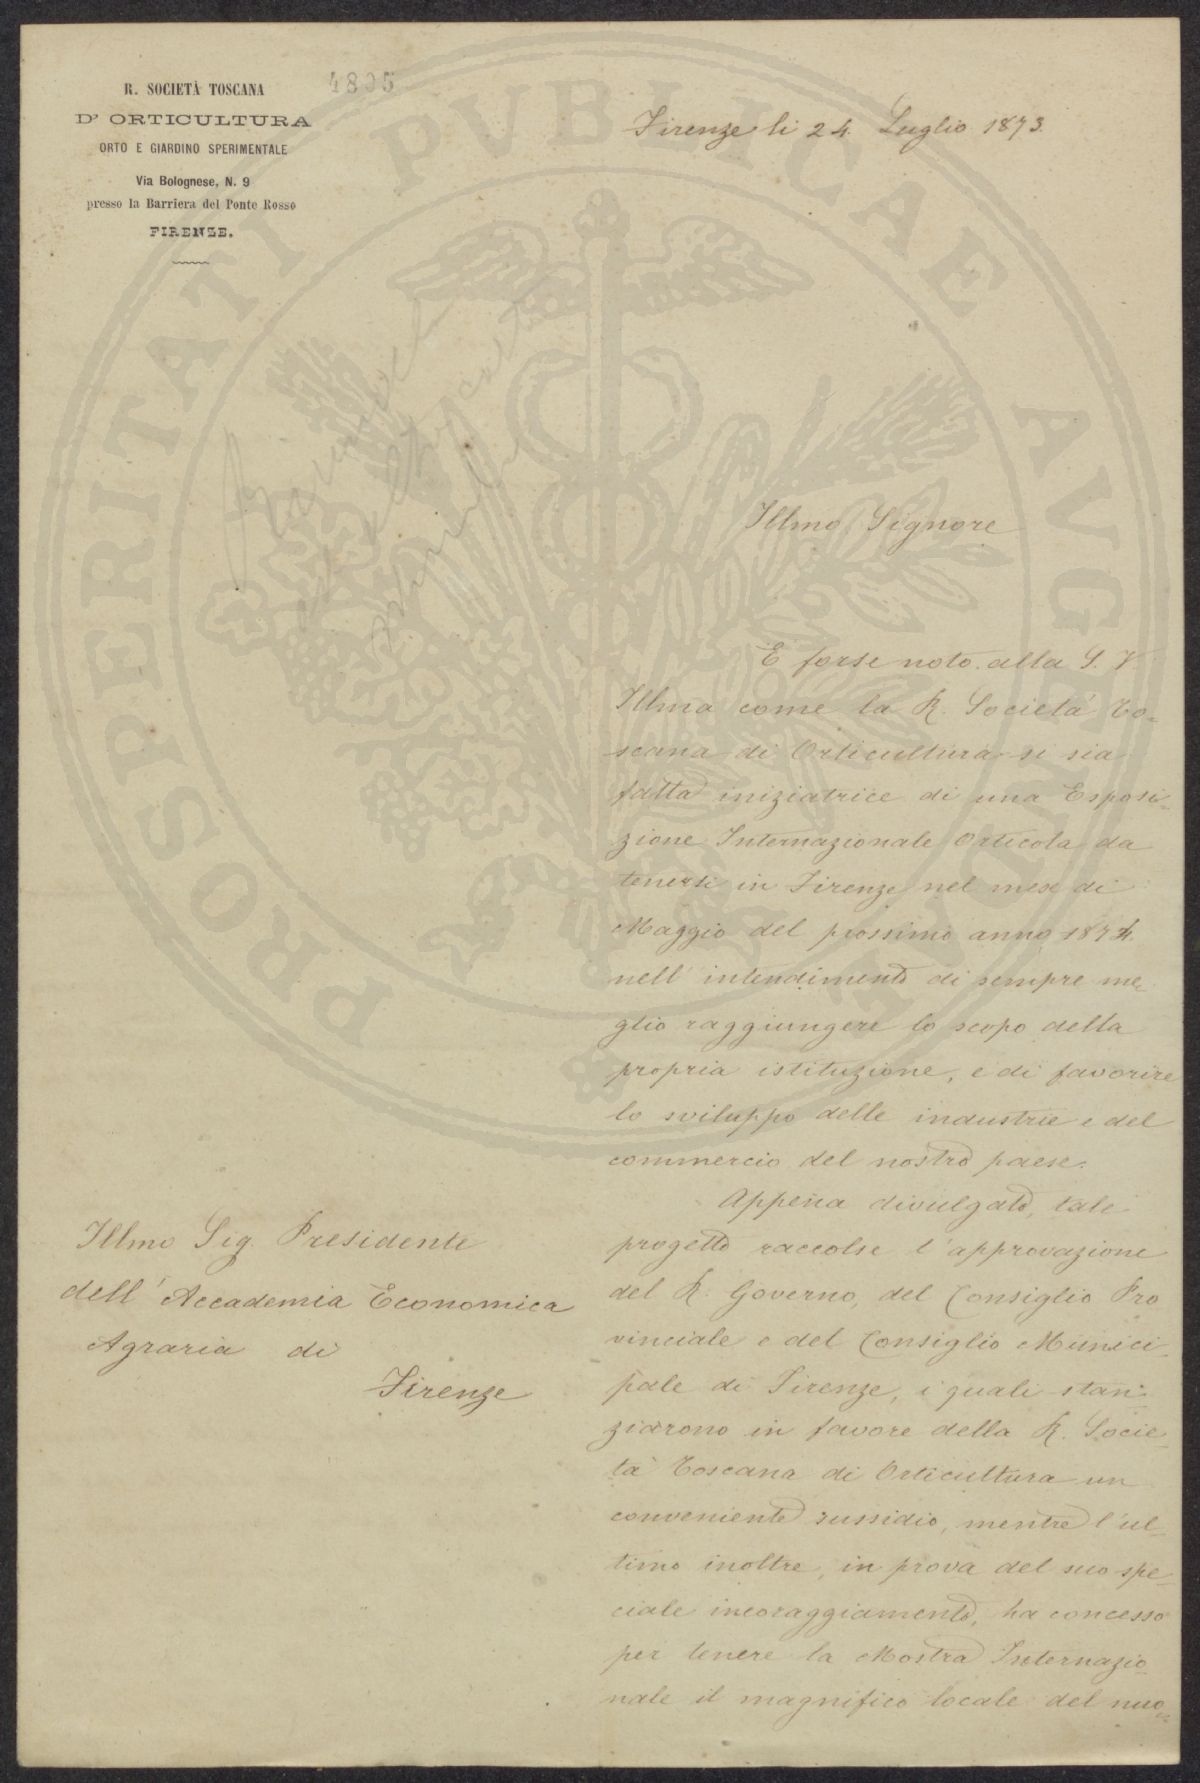 R. SOCIETÀ TOSCANA
D' ORTICULTURA
ORTO E GIARDINO SPERIMENTALE
Via Bolognese, N. 9
presso la Barriera del Ponte Rosso
FIRENZE.
4895
Firenze li 24 Luglio 1873.
PROSPERITATI PVBLICAE AVGENDAE
Illmo Signore
È forse noto alla S. V.
Illma come la R. Società To-
scana di Orticultura si sia
fatta iniziatrice di una Esposi-
zione Internazionale Orticola da
tenersi in Firenze nel mese di
Maggio del prossimo anno 1874.
nell' intendimento di sempre me-
glio raggiungere lo scopo della
propria istituzione, e di favorire
lo sviluppo delle industrie e del
commercio del nostro paese.
Appena divulgato, tale
progetto raccolse l'approvazione
del R. Governo, del Consiglio Pro
vinciale e del Consiglio Munici-
pale di Firenze, i quali stan-
ziarono in favore della R. Socie-
tà Toscana di Orticultura un
conveniente sussidio, mentre l'ul-
timo inoltre, in prova del suo spe-
ciale incoraggiamento, ha concesso
per tenere la Mostra Internazio
nale il magnifico locale del nuo-
Illmo Sig. Presidente
dell' Accademia Economica
Agraria di
Firenze